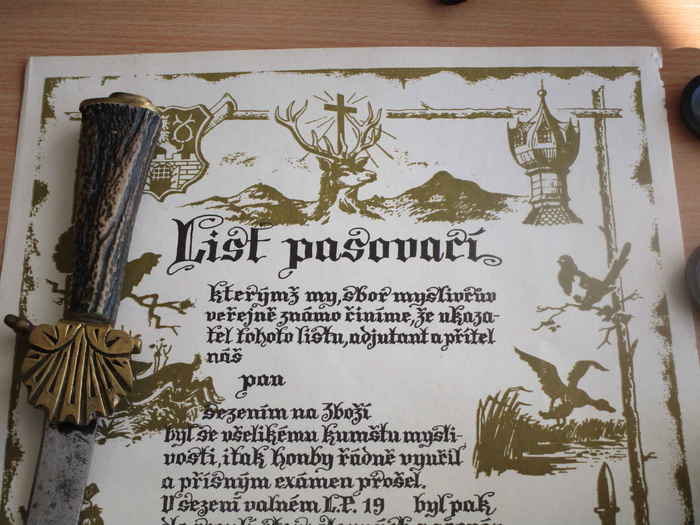 List pasovací
kterýmž my, sbor myslivcův
veřejně známo činíme, že ukaza-
tel tohoto listu, adjutant a přítel
náš
pan
sezením na Zboží
byl se všelikému kumštu mysli-
vosti, i tak honby řádně vyučil
a přísným exámen prošel.
V sezení valném L.P. 19 byl pak